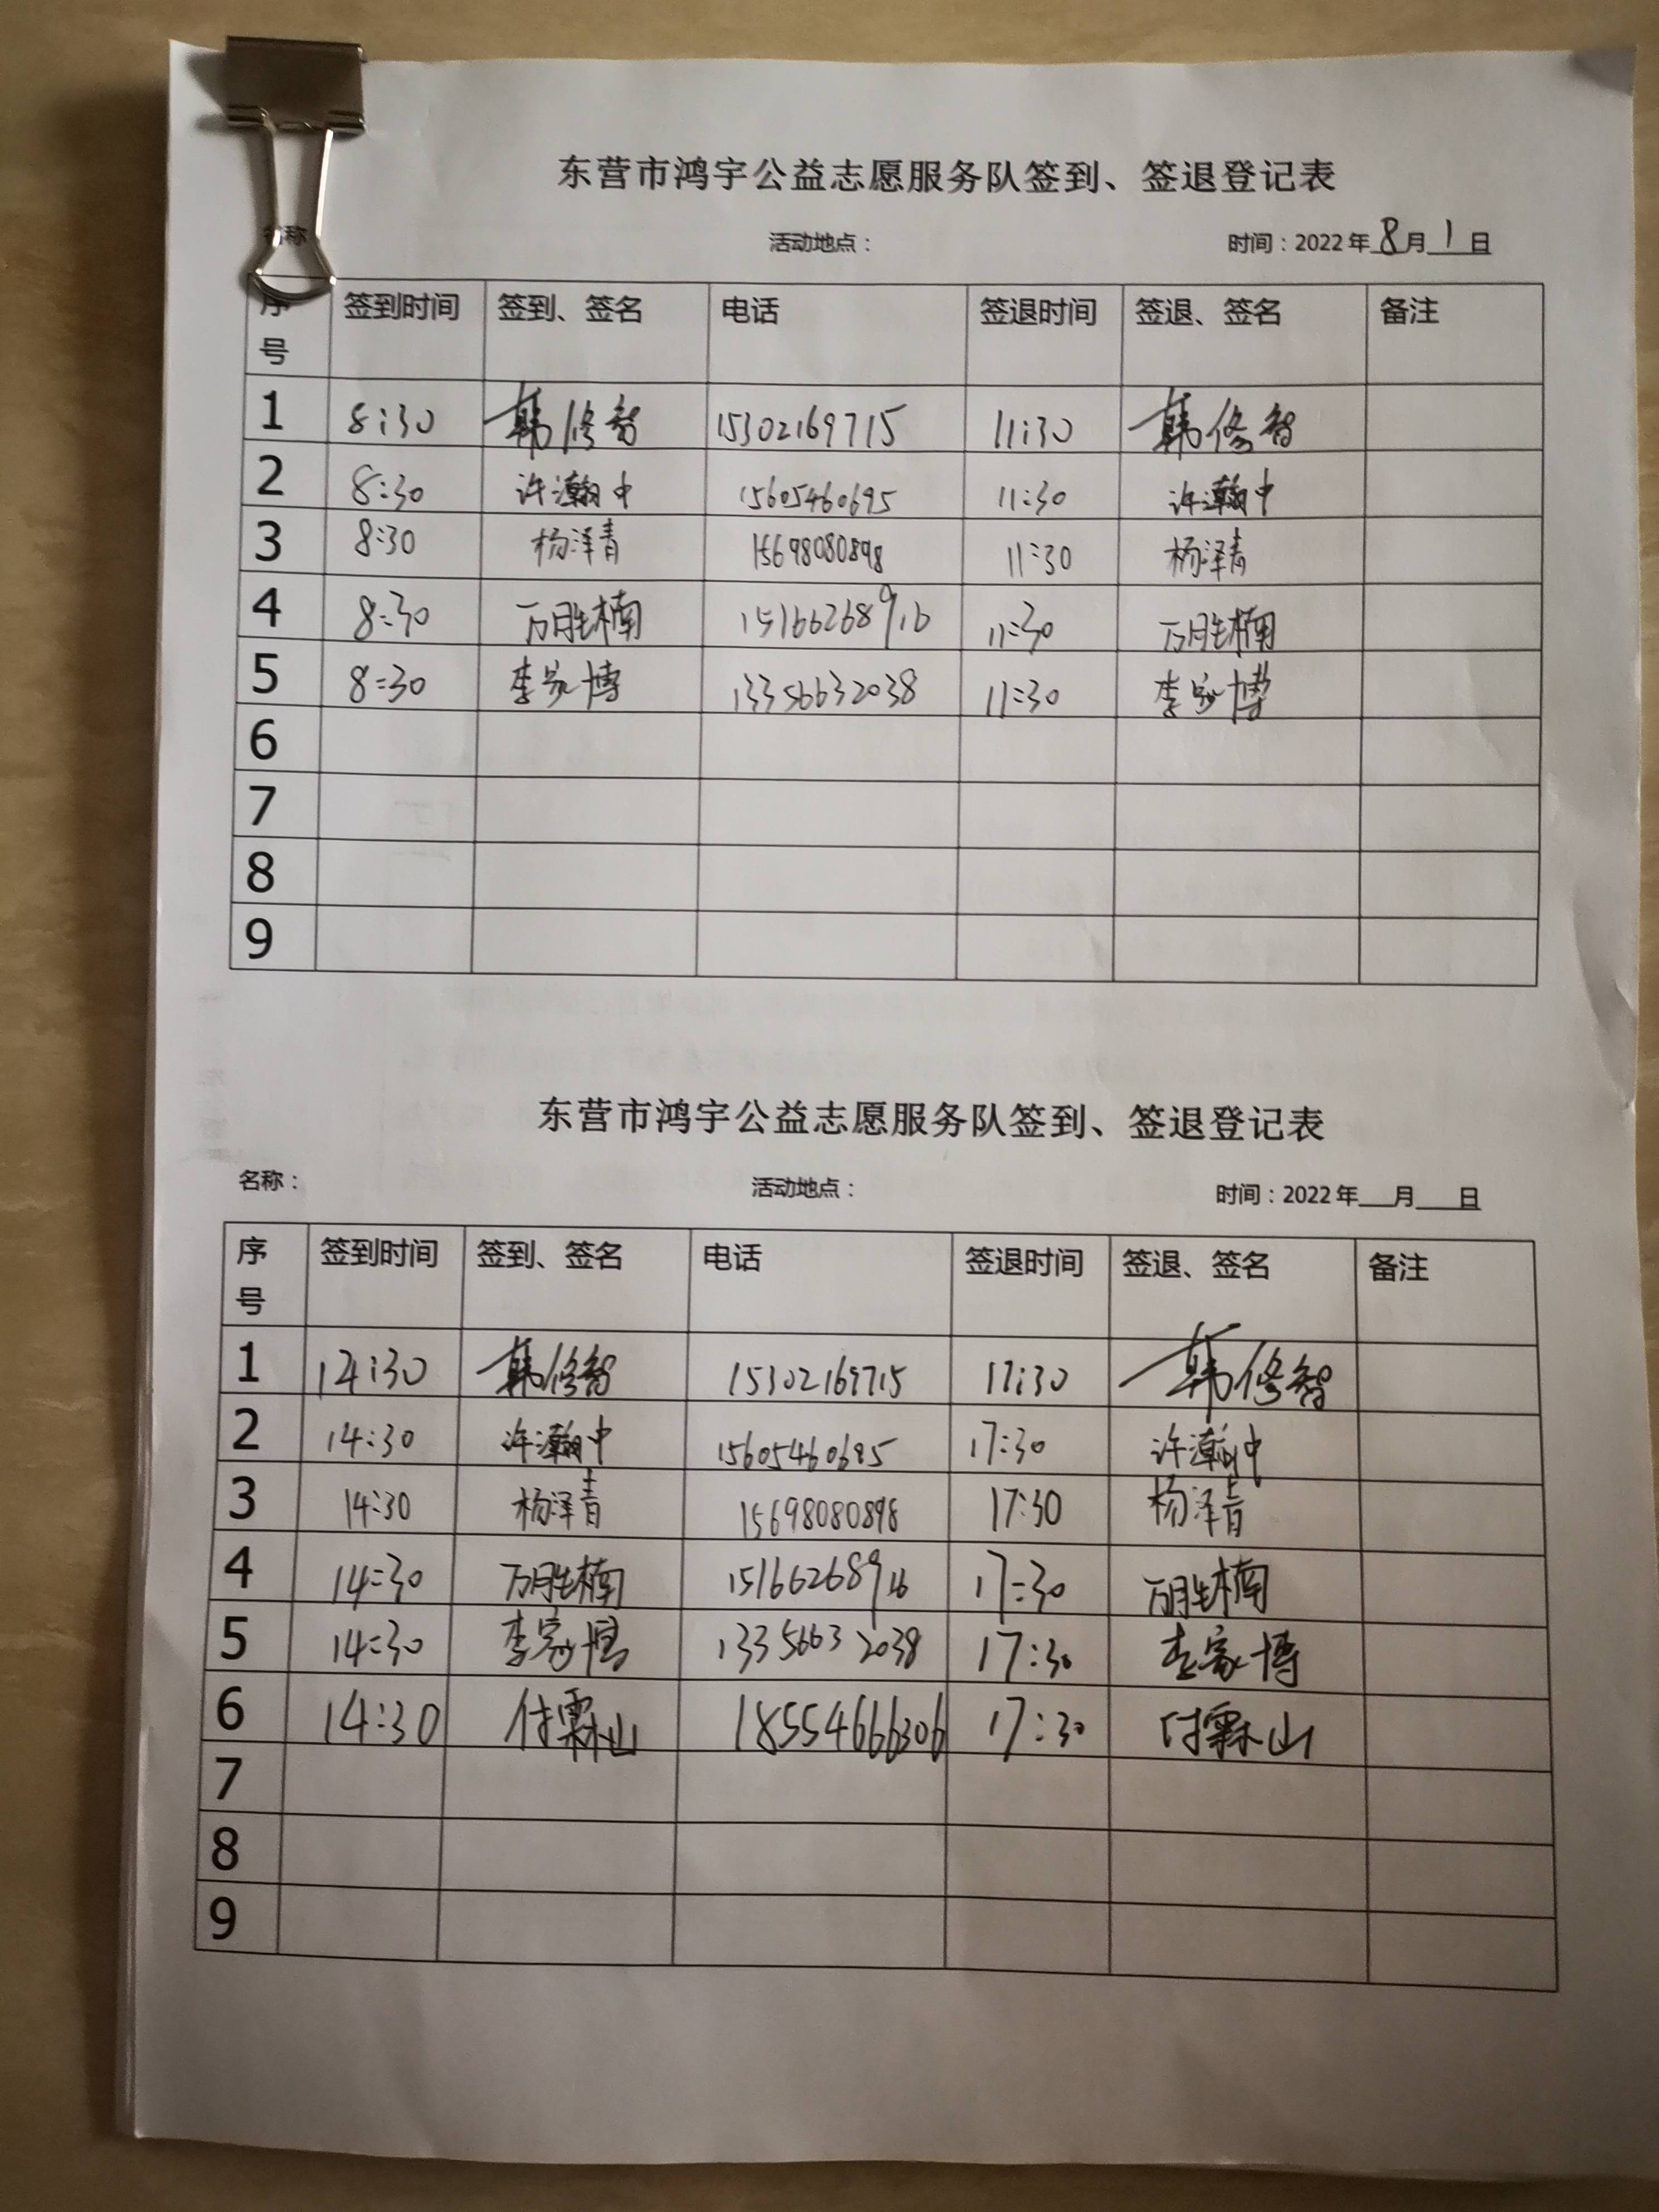 东营市鸿宇公益志愿服务队签到、签退登记表
名称 活动地点： 时间：2022年8月1日
序号 签到时间 签到、签名 电话 签退时间 签退、签名 备注
1 8:30 韩修智 15302169715 11:30 韩修智
2 8:30 许瀚中 15605460695 11:30 许瀚中
3 8:30 杨泽青 15698080898 11:30 杨泽青
4 8:30 万胜楠 15166268916 11:30 万胜楠
5 8:30 李家博 13356632038 11:30 李家博
6
7
8
9
东营市鸿宇公益志愿服务队签到、签退登记表
名称： 活动地点： 时间：2022年___月___日
序号 签到时间 签到、签名 电话 签退时间 签退、签名 备注
1 14:30 韩修智 15302169715 17:30 韩修智
2 14:30 许瀚中 15605460695 17:30 许瀚中
3 14:30 杨泽青 15698080898 17:30 杨泽青
4 14:30 万胜楠 15166268916 17:30 万胜楠
5 14:30 李家博 13356632038 17:30 李家博
6 14:30 付霖山 18554666306 17:30 付霖山
7
8
9